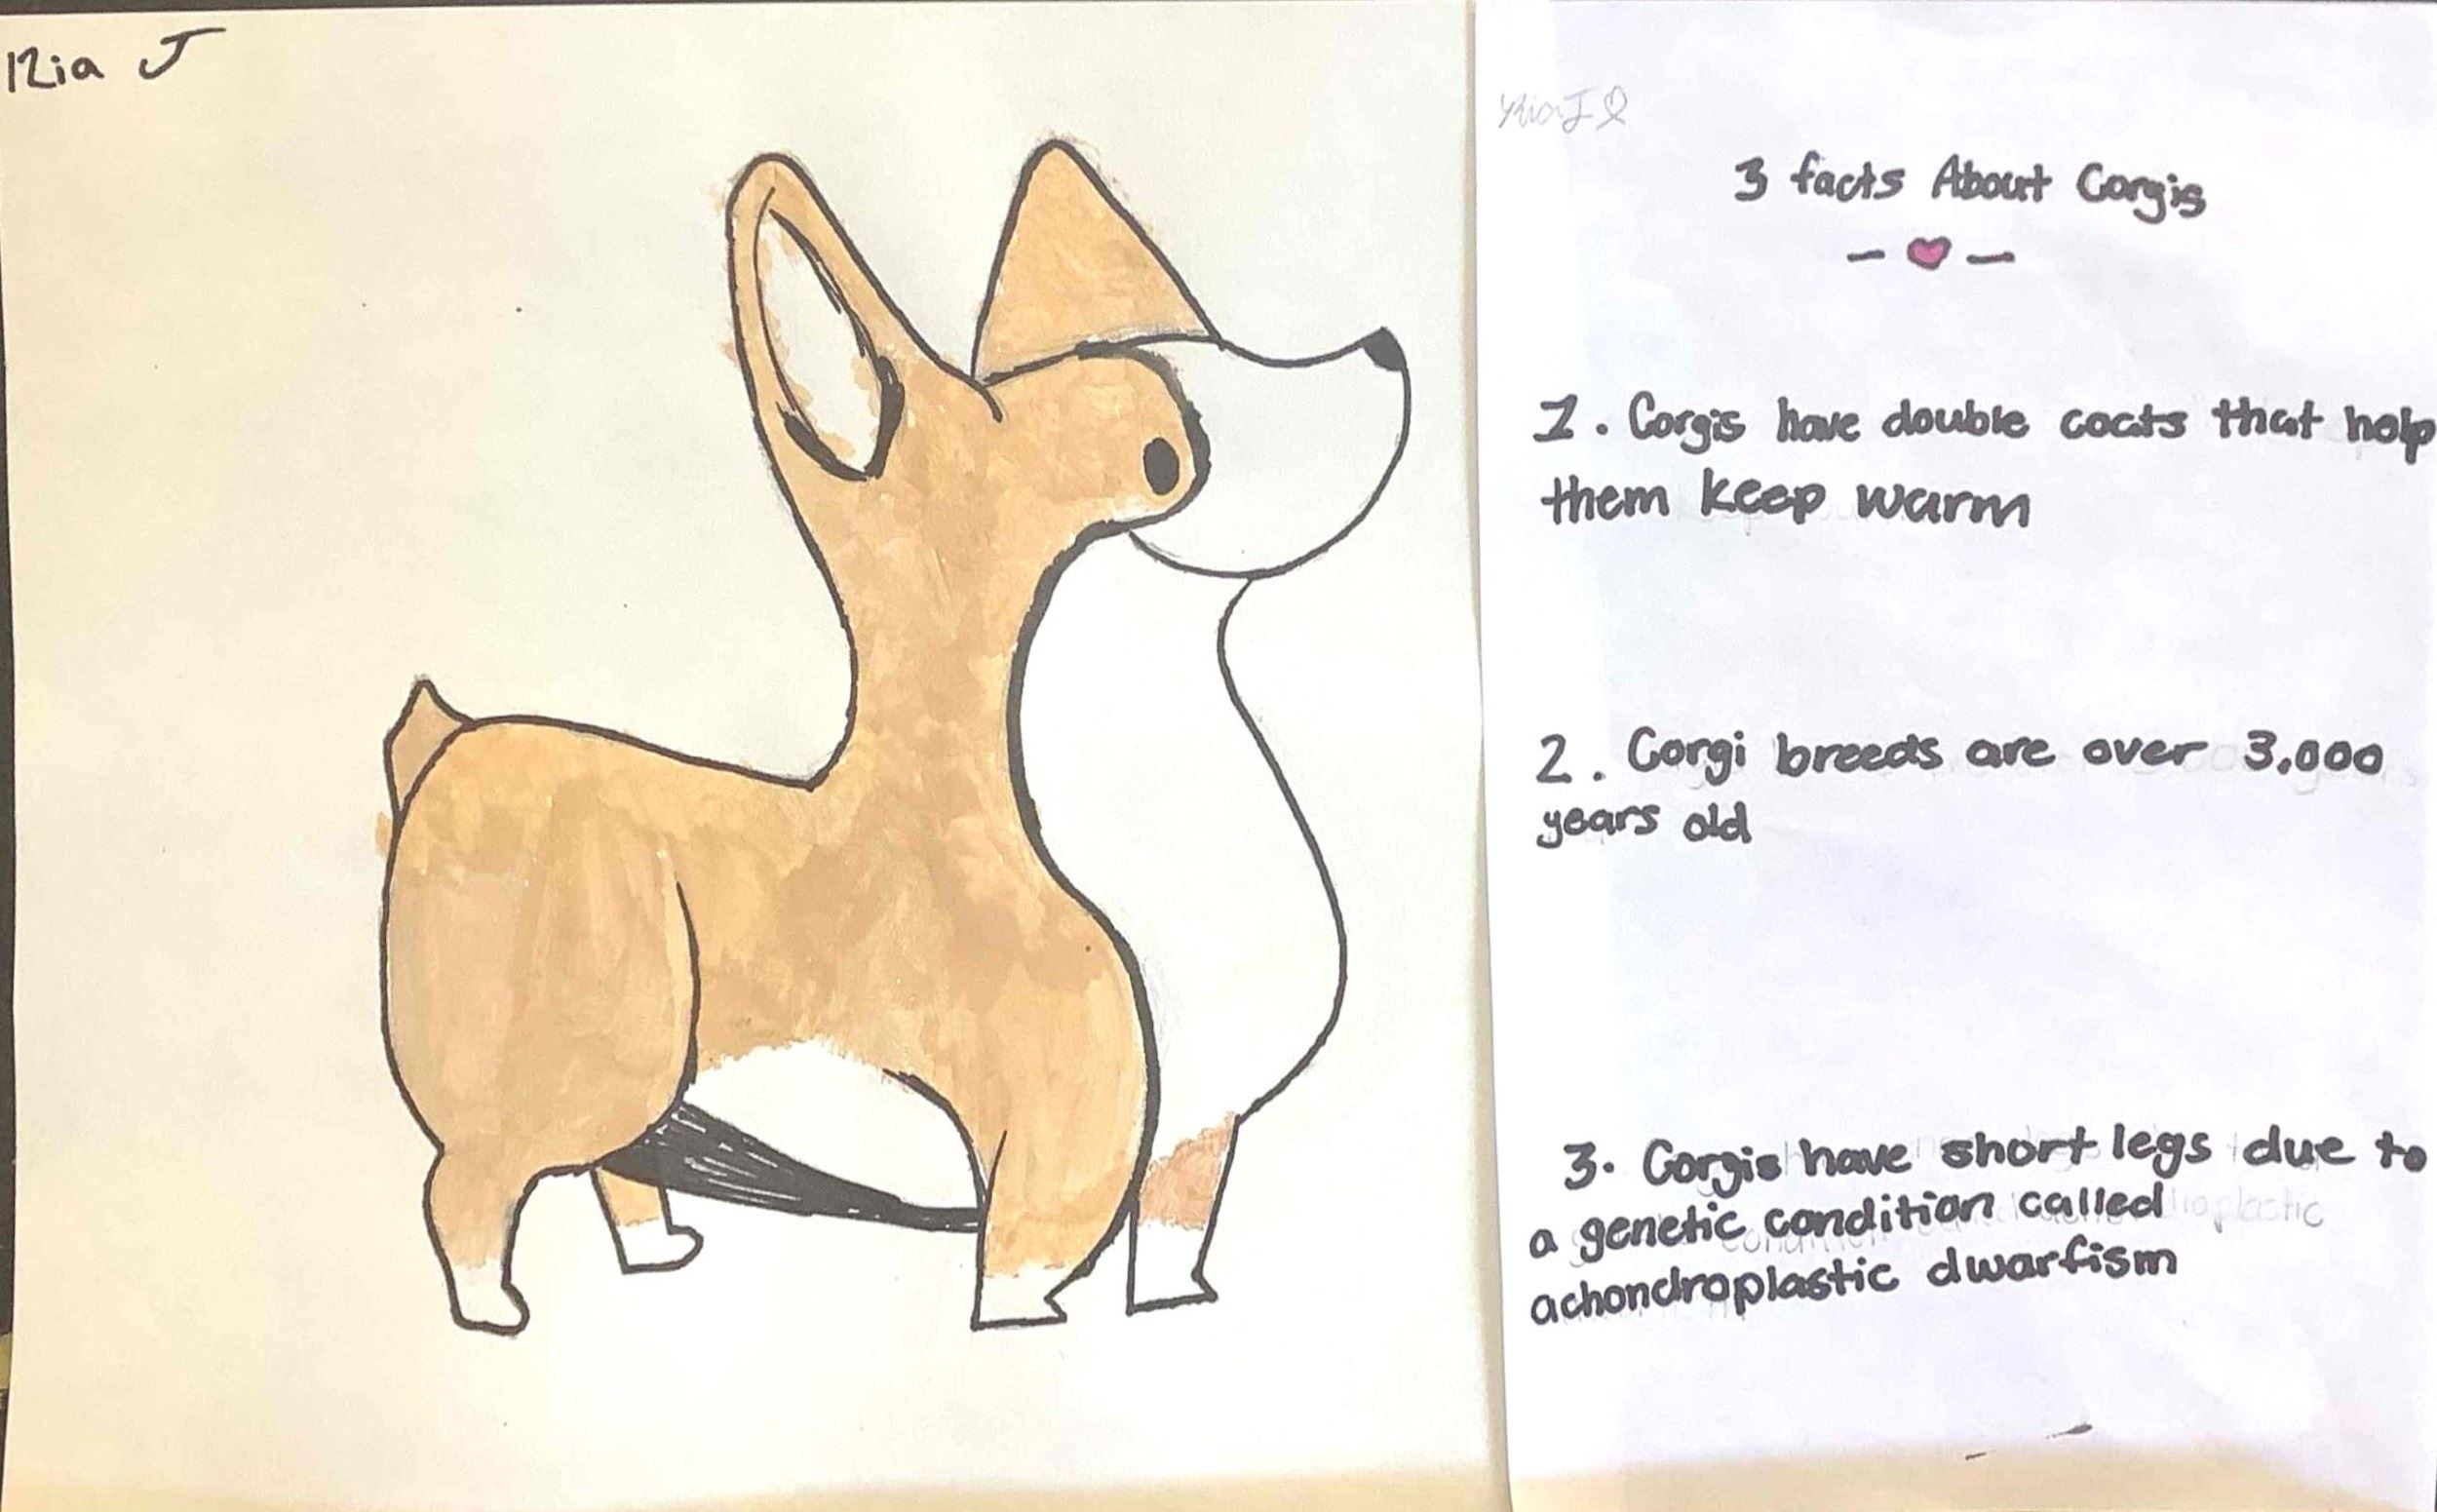 Ria J
Ria J
3 facts About Corgis
1. Corgis have double coats that help
them keep warm
2. Corgi breeds are over 3,000
years old
3. Corgis have short legs due to
a genetic condition called
achondroplastic dwarfism